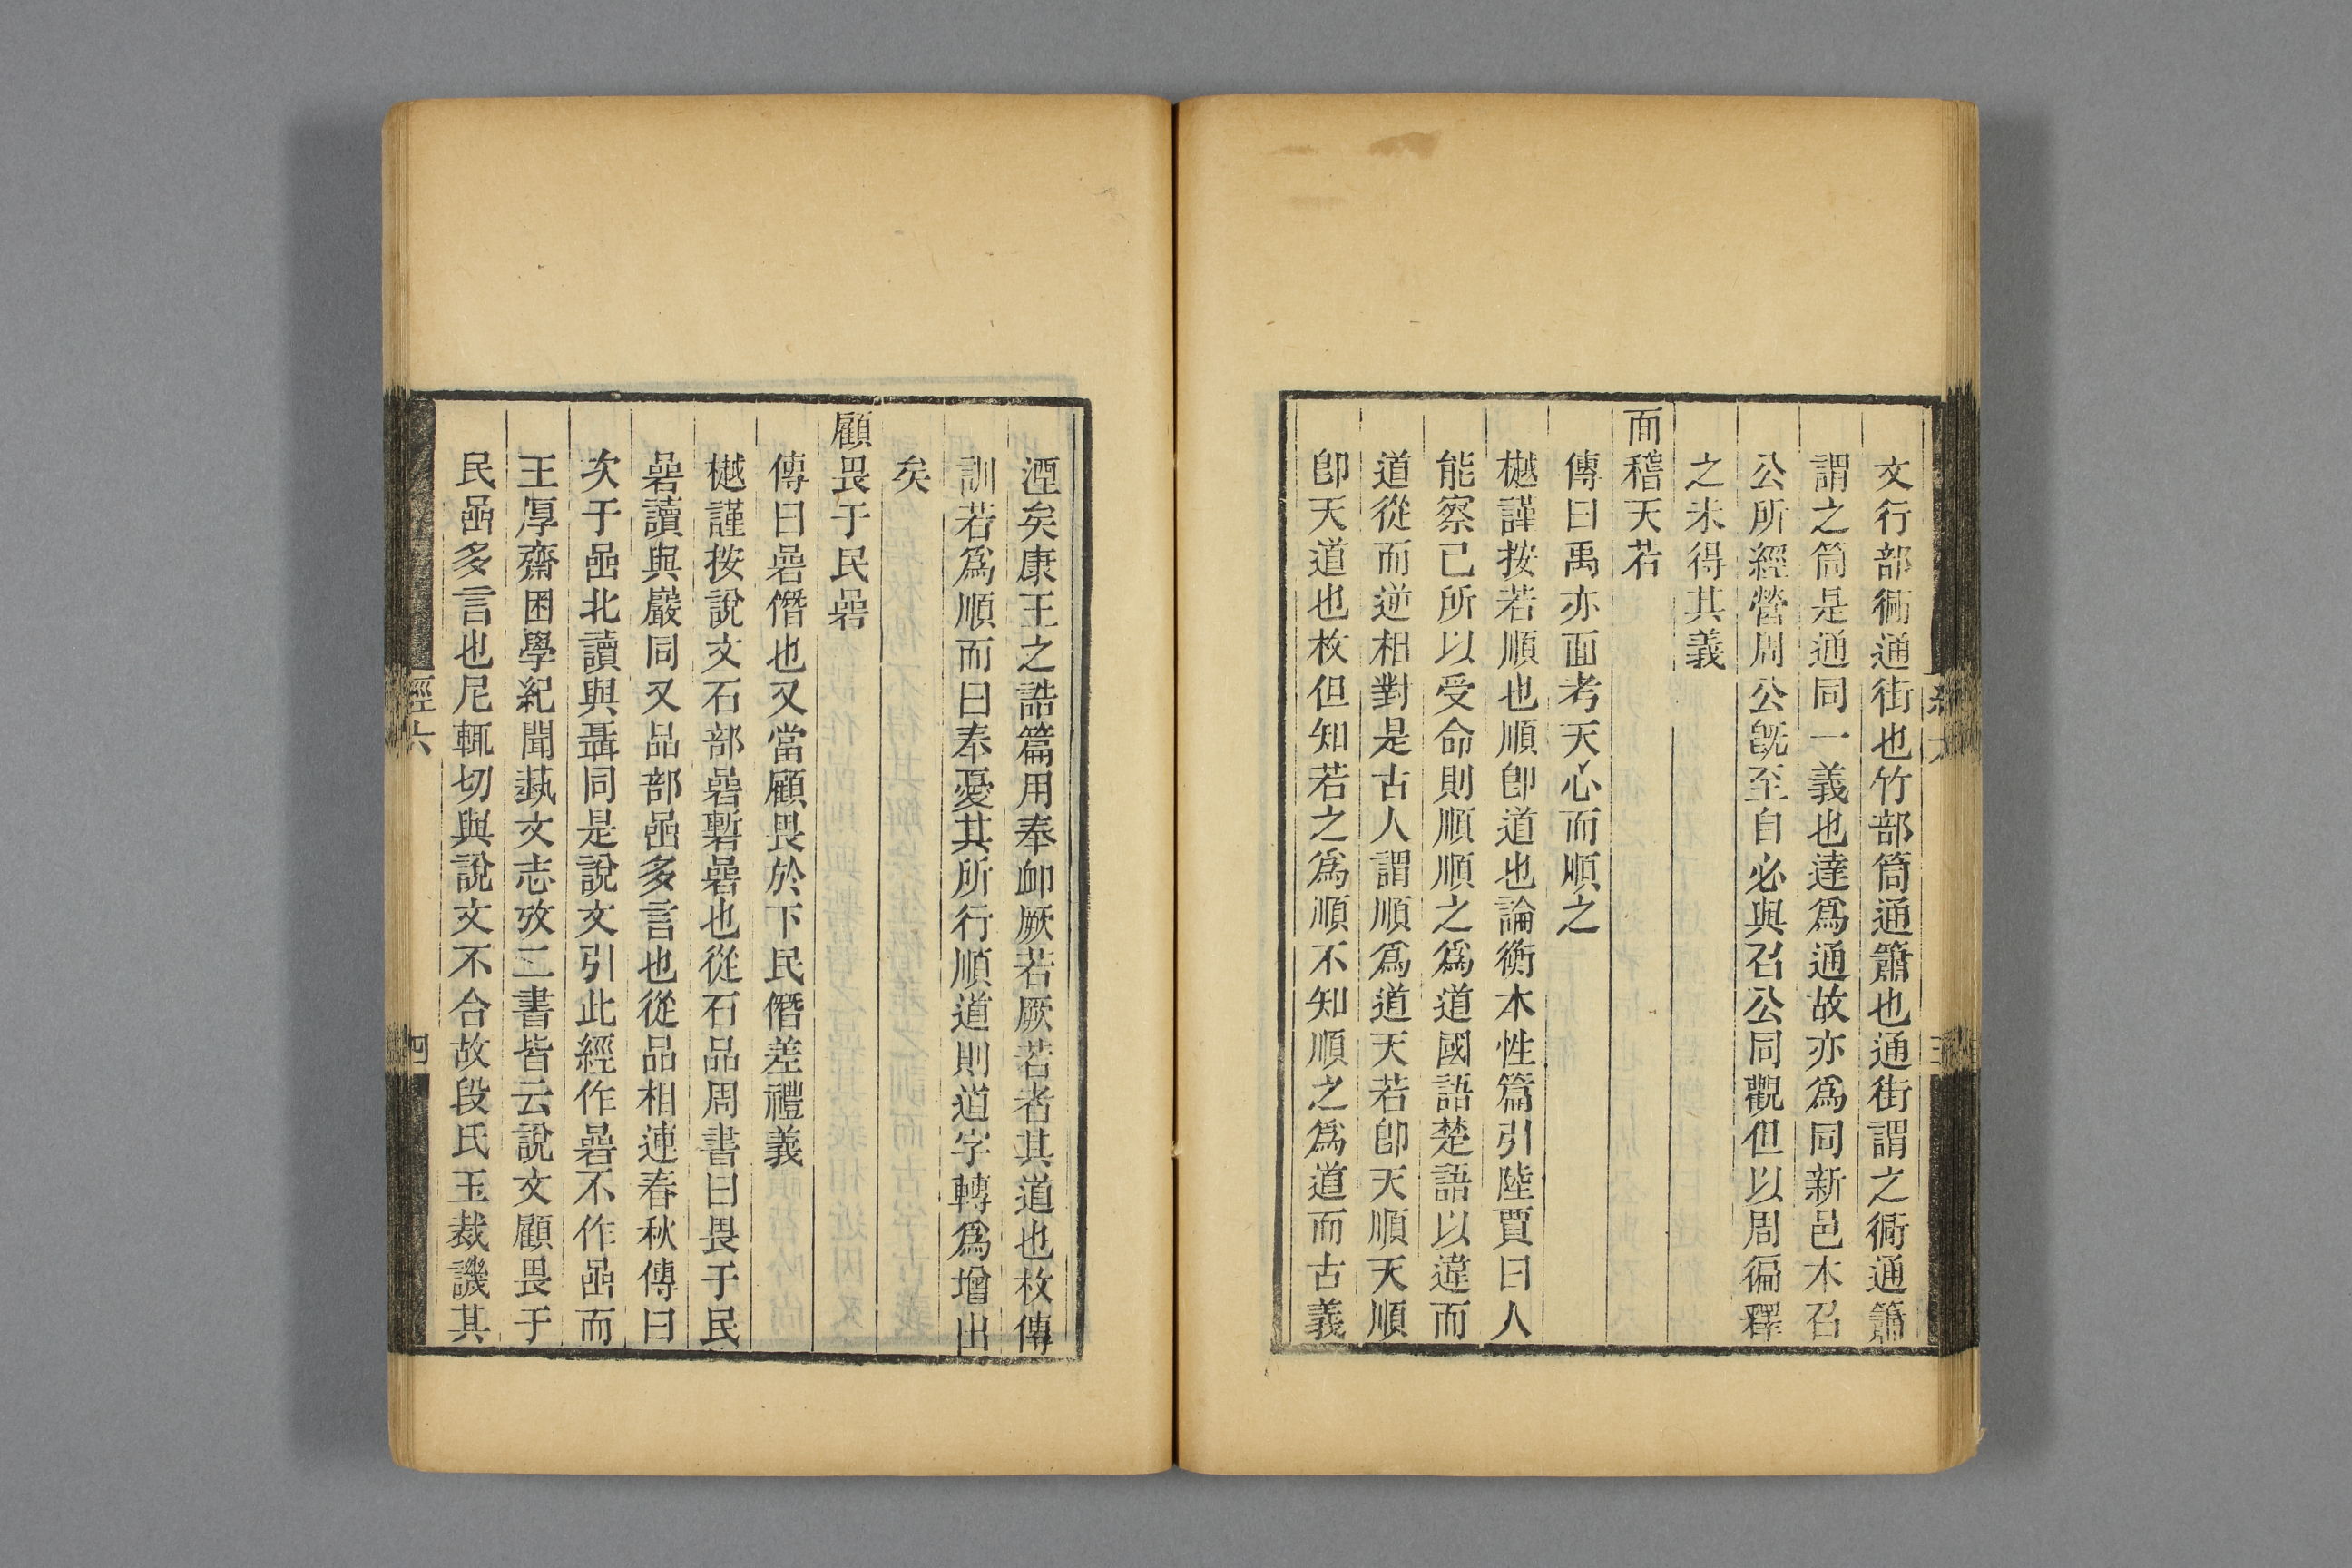 文行部衕通街也竹部筒通簫也通街謂之衕通簫
謂之筒是通同一義也達爲通故亦爲同新邑木召
公所經營周公旣至自必與召公同觀但以周徧釋
之未得其義
面稽天若
傳曰禹亦面考天心而順之
樾謹按若順也順卽道也論衡本性篇引陸賈曰人
能察已所以受命則順順之爲道國語楚語以違而
道從而逆相對是古人謂順爲道天若卽天順天順
卽天道也枚但知若之爲順不知順之爲道而古義
湮矣康王之誥篇用奉卹厥若厥若者其道也枚傳
訓若爲順而曰奉憂其所行順道則道字轉爲增出
矣
顧畏于民碞
傳曰碞僭也又當顧畏於下民僭差禮義
樾謹按說文石部碞塹碞也從石品周書曰畏于民
碞讀與巖同又品部喦多言也從品相連春秋傳曰
次于喦北讀與聶同是說文引此經作碞不作喦而
王厚齋困學紀聞蓺文志攷二書皆云說文顧畏于
民喦多言也尼輒切與說文不合故段氏玉裁譏其
經六
四